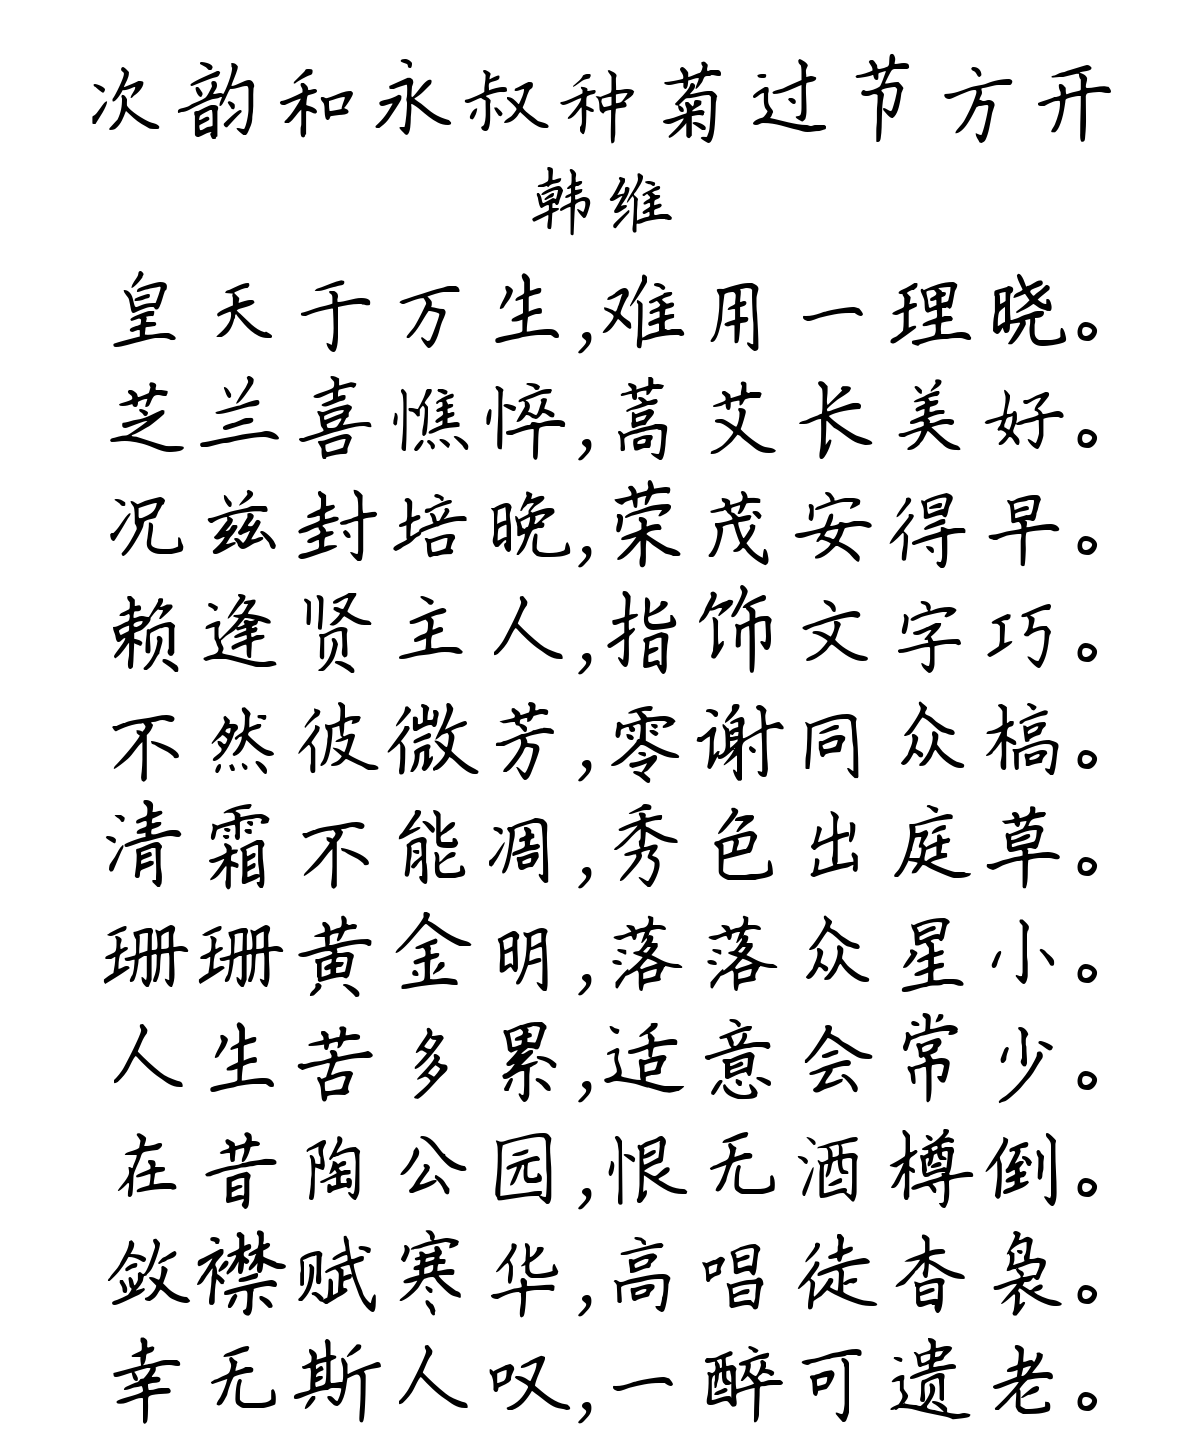 次韵和永叔种菊过节方开
韩维
皇天于万生,难用一理晓。
芝兰喜憔悴,蒿艾长美好。
况兹封培晚,荣茂安得早。
赖逢贤主人,指饰文字巧。
不然彼微芳,零谢同众槁。
清霜不能凋,秀色出庭草。
珊珊黄金明,落落众星小。
人生苦多累,适意会常少。
在昔陶公园,恨无酒樽倒。
敛襟赋寒华,高唱徒杳袅。
幸无斯人叹,一醉可遗老。